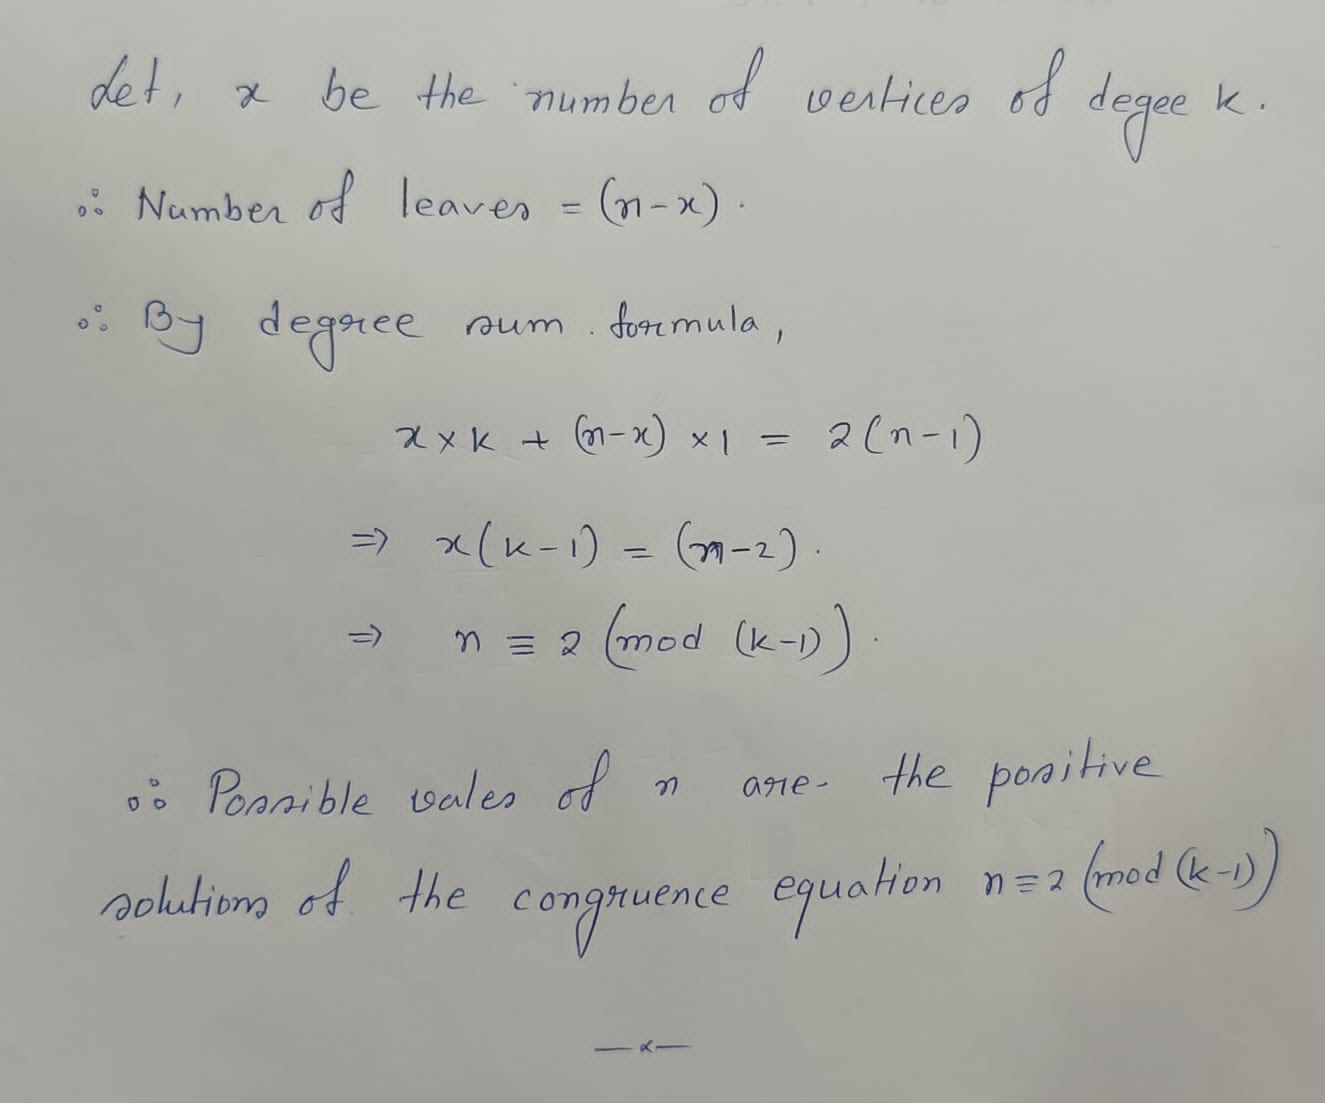 Let, x be the number of vertices of degee k.
∴ Number of leaves = (n-x).
∴ By degree sum formula,
x × k + (n-x) × 1 = 2(n-1)
⇒ x(k-1) = (n-2).
⇒ n ≡ 2 (mod (k-1)).
∴ Possible vales of n are the positive
solutions of the congruence equation n ≡ 2 (mod (k-1))
—x—